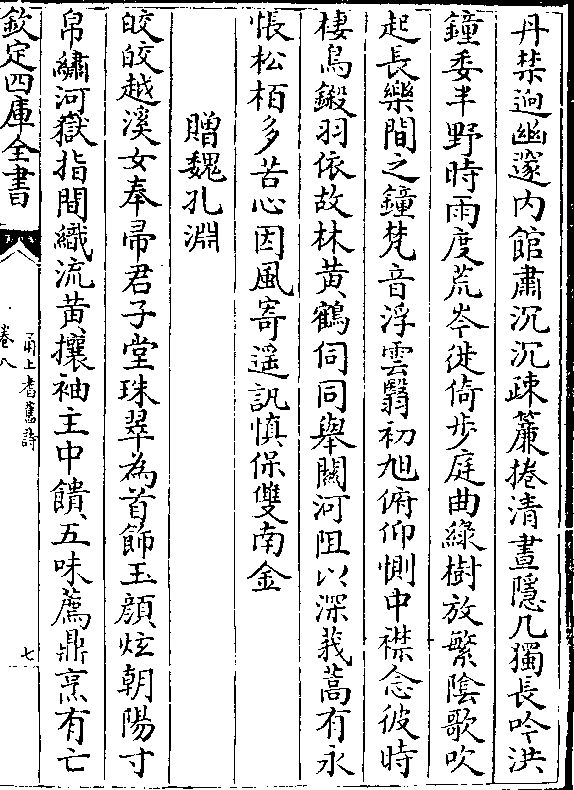 丹禁迥幽邃內館肅沉沉疎簾捲清晝隱几獨長吟洪
鐘委半野時雨度荒岑徙倚步庭曲綠樹放繁陰歌吹
起長樂間之鐘梵音浮雲翳初旭俯仰惻中襟念彼時
棲鳥鎩羽依故林黃鶴伺同舉關河阻以深莪蒿有永
悵松栢多苦心因風寄遥訊慎保雙南金
贈魏孔淵
皎皎越溪女奉帚君子堂珠翠為首飾玉顔炫朝陽寸
帛繡河嶽指間織流黃攘袖主中饋五味薦鼎烹有亡
欽定四庫全書
甬上耆舊詩
卷八
七